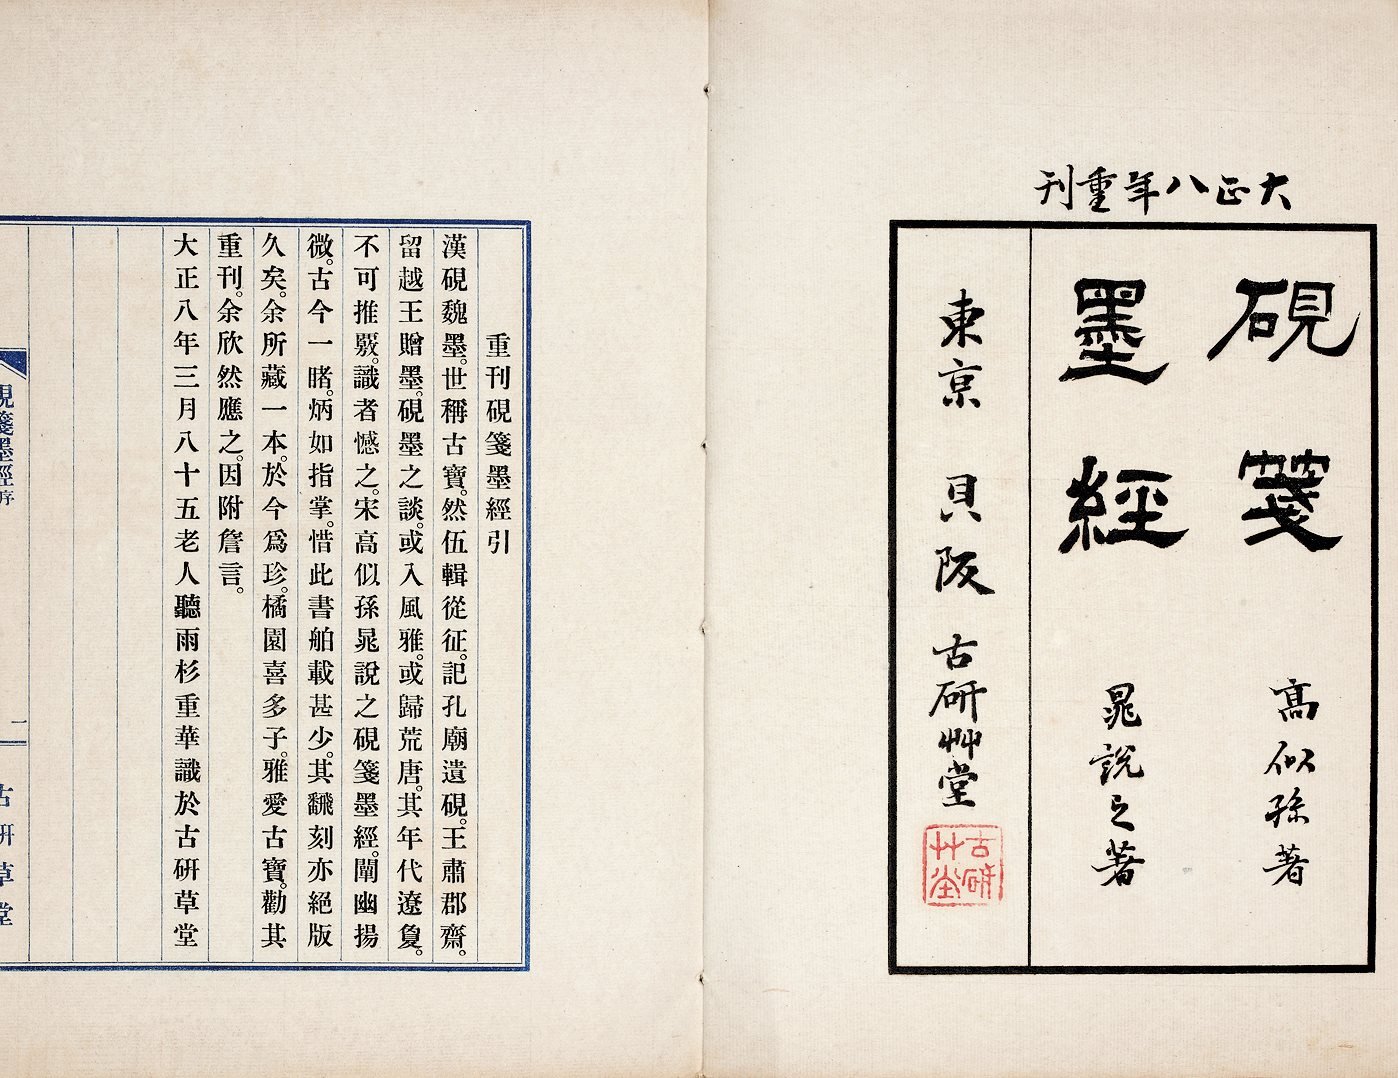 大正八年重刊
硯箋
高似孫著
墨經
晁說之著
東京 貝阪 古研艸堂
古研艸堂
重刊硯箋墨經引
漢硯魏墨。世稱古寶。然伍輯從征。記孔廟遺硯。王肅郡齋。
留越王贈墨。硯墨之談。或入風雅。或歸荒唐。其年代遼敻。
不可推覈。識者憾之。宋高似孫晁說之硯箋墨經。闡幽揚
微。古今一睹。炳如指掌。惜此書舶載甚少。其飜刻亦絕版
久矣。余所藏一本。於今爲珍。橘園喜多子。雅愛古寶。勸其
重刊。余欣然應之。因附詹言。
大正八年三月八十五老人聽雨杉重華識於古硏草堂
硯箋墨經序
二
古硏草堂